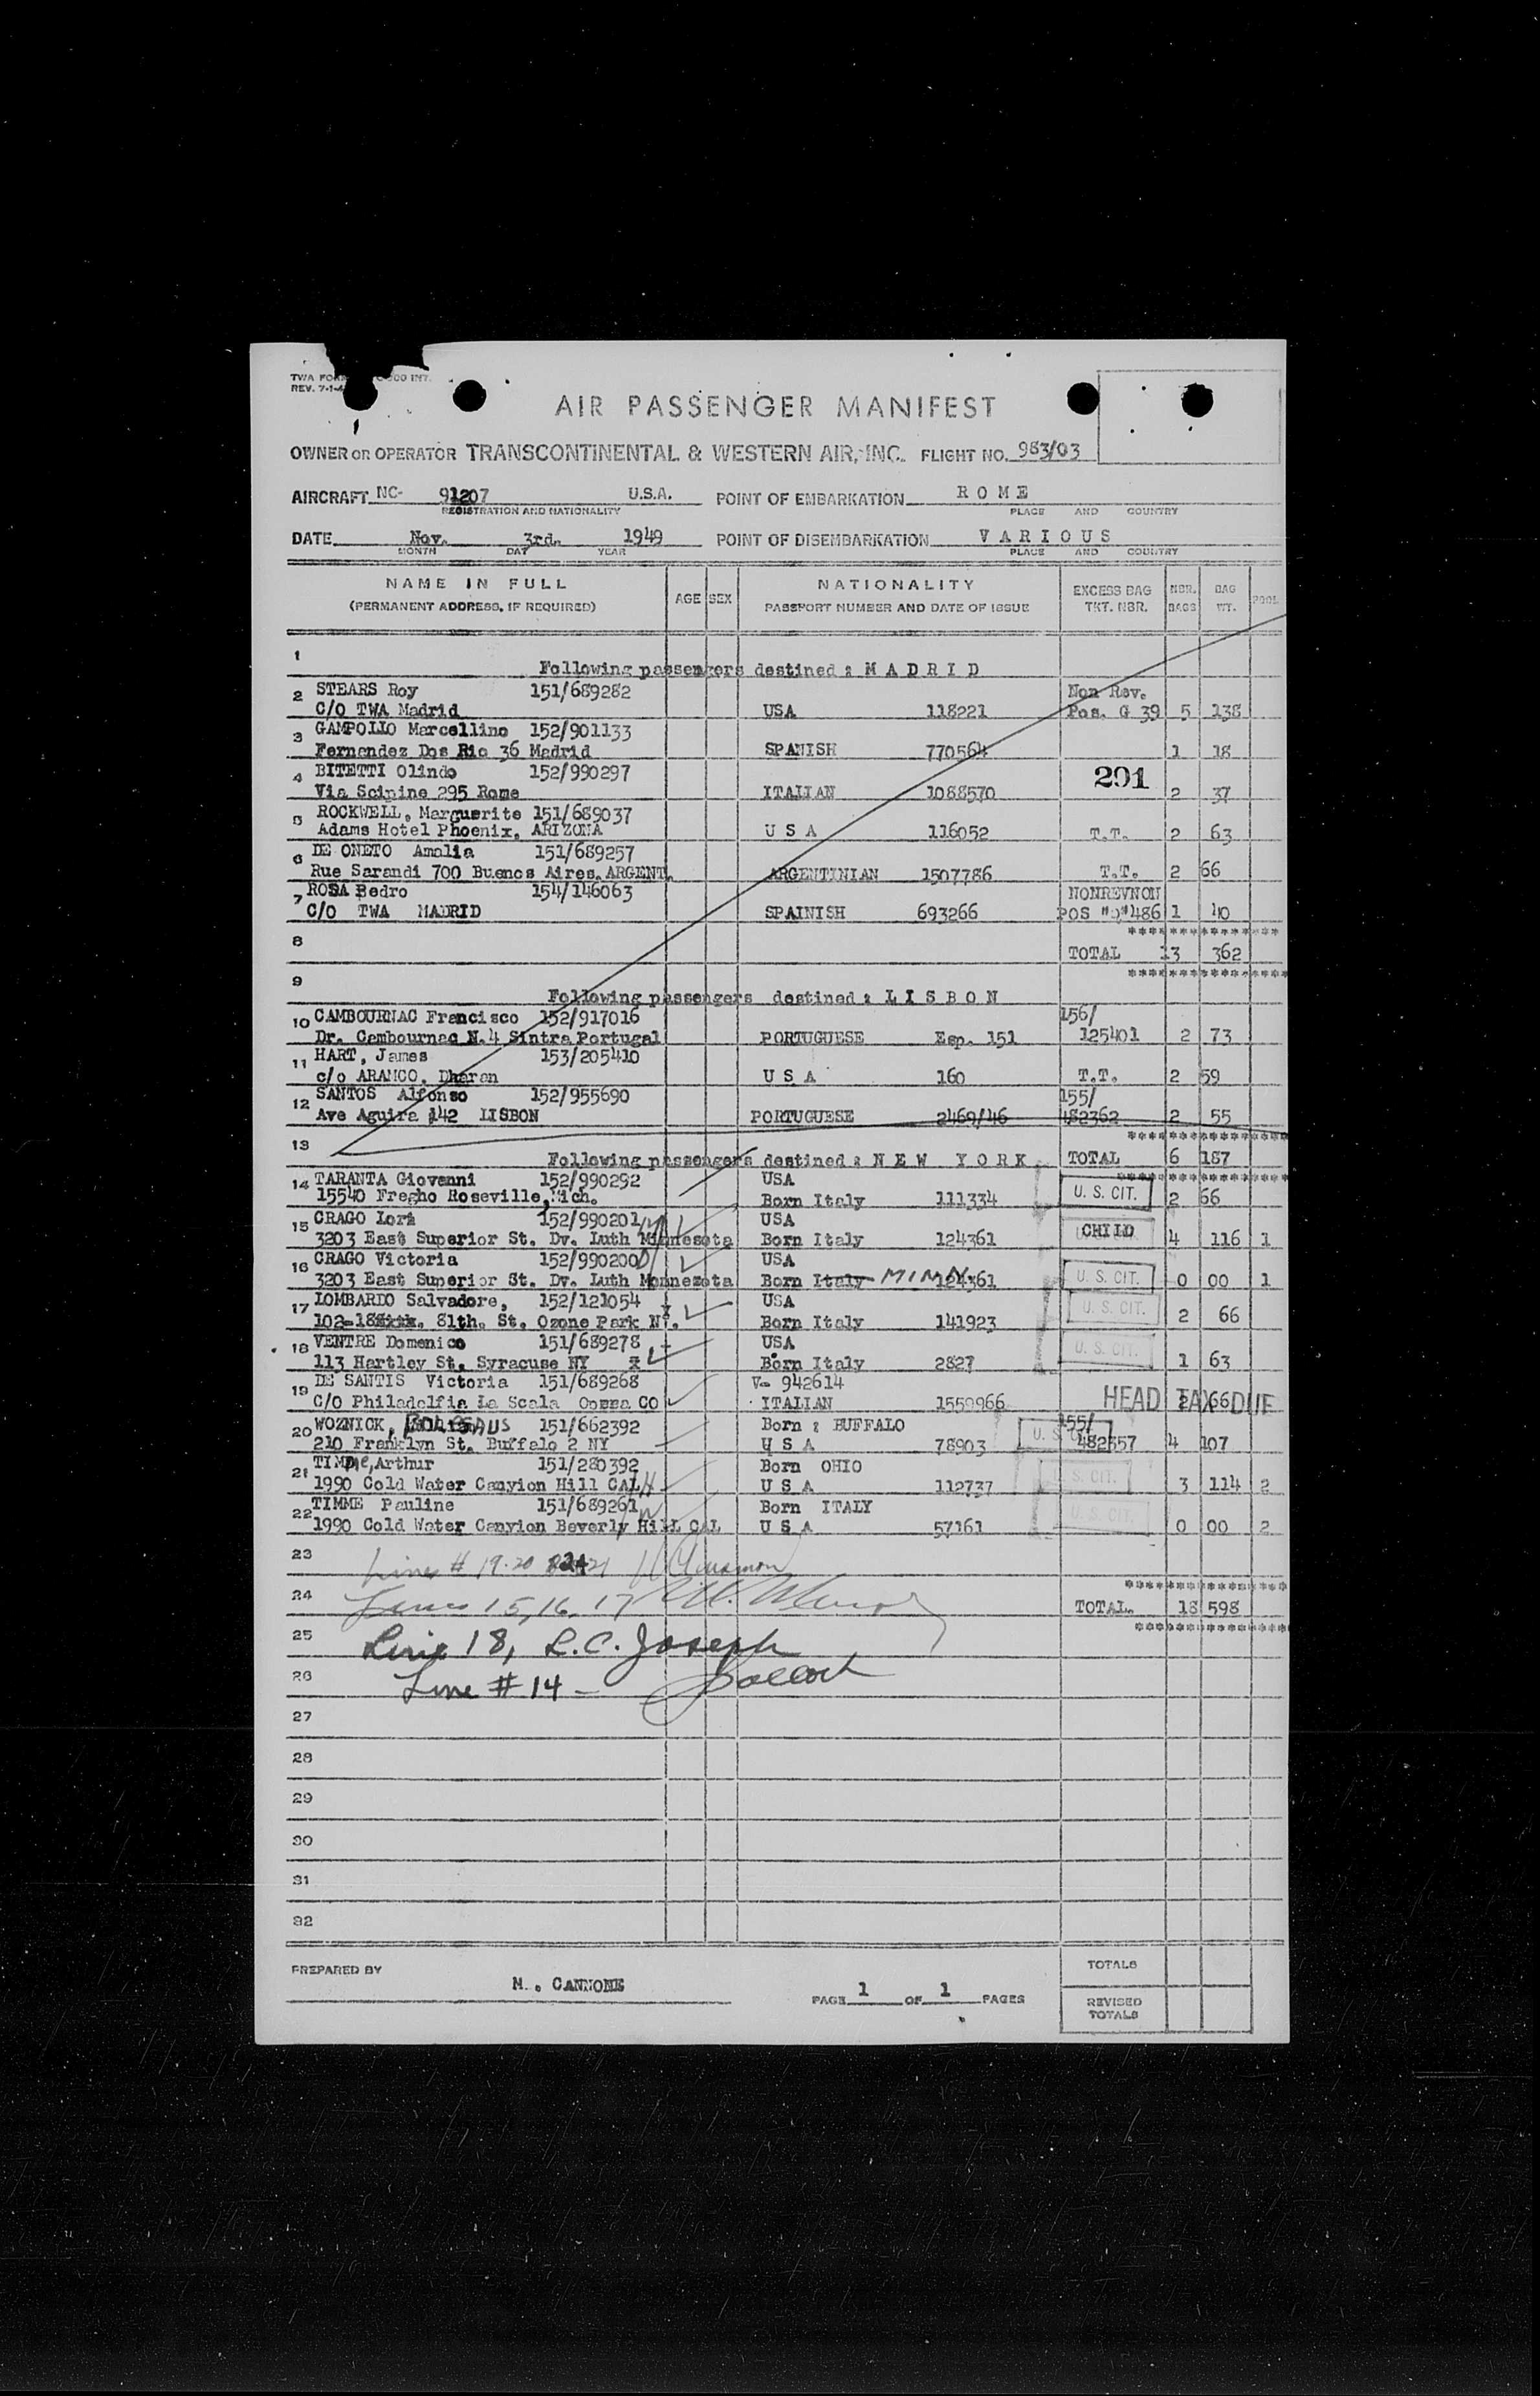 TWA FOR
REV. 7-1-4
AIR PASSENGER MANIFEST
OWNER OR OPERATOR TRANSCONTINENTAL & WESTERN AIR, INC. FLIGHT NO. 983/03
AIRCRAFT NC- 91207 U.S.A. POINT OF EMBARKATION R O M E
REGISTRATION AND NATIONALITY PLACE AND COUNTRY
DATE Nov. 3rd. 1949 POINT OF DISEMBARKATION V A R I O U S
MONTH DAY YEAR PLACE AND COUNTRY
NAME IN FULL (PERMANENT ADDRESS, IF REQUIRED) AGE SEX NATIONALITY PASSPORT NUMBER AND DATE OF ISSUE EXCESS BAG TKT. NBR. NBR. BAGS BAG WT. POOL
1 Following passengers destined : M A D R I D
2 STEARS Roy 151/689282 Non Rev.
C/O TWA Madrid USA 118221 Pos. G 39 5 138
3 GAMPOLLO Marcellino 152/901133
Fernandez Dos Rio 36 Madrid SPANISH 770564 1 18
4 BITETTI Olindo 152/990297 201
Via Scipine 295 Rome ITALIAN 1088570 2 37
5 ROCKWELL, Marguerite 151/689037
Adams Hotel Phoenix, ARIZONA U S A 116052 T.T. 2 63
6 DE ONETO Amalia 151/689257
Rue Sarandi 700 Buenos Aires, ARGENT. ARGENTINIAN 1507786 T.T. 2 66
7 ROSA Pedro 154/146063 NONREVNON
C/O TWA MADRID SPAINISH 693266 POS "O"486 1 40
**************
8 TOTAL 13 362
**************
9 Following passengers destined : L I S B O N
10 CAMBOURNAC Francisco 152/917016 156/
Dr. Cambournac N.4 Sintra Portugal PORTUGUESE Esp. 151 125401 2 73
11 HART, James 153/205410
c/o ARAMCO, Dharan U S A 160 T.T. 2 59
12 SANTOS Alfonso 152/955690 155/
Ave Aguira 142 LISBON PORTUGUESE 2469/46 482362 2 55
**************
13 Following passengers destined : N E W Y O R K TOTAL 6 187
**************
14 TARANTA Giovanni 152/990292 USA
15540 Fregho Roseville, Mich. Born Italy 111334 U. S. CIT. 2 66
15 CRAGO Lora 152/990201 USA
3203 East Superior St. Dv. Luth Minnesota Born Italy 124361 CHILD 4 116 1
16 CRAGO Victoria 152/990200 USA
3203 East Superior St. Dv. Luth Monnezota Born Italy MINN. 124361 U. S. CIT. 0 00 1
17 LOMBARDO Salvadore, 152/121054 USA
102-188 81th. St. Ozone Park NY. Born Italy 141923 U. S. CIT. 2 66
18 VENTRE Domenico 151/689278 USA
113 Hartley St. Syracuse NY Born Italy 2827 U. S. CIT. 1 63
19 DE SANTIS Victoria 151/689268 V- 942614
C/O Philadelfia La Scala Opera CO ITALIAN 1559966 HEAD TAX DUE 2 66
20 WOZNICK, BOLESAUS 151/662392 Born : BUFFALO 155/
210 Franklyn St. Buffalo 2 NY U S A 78903 U. S. CIT. 482357 4 107
21 TIMME, Arthur 151/280392 Born OHIO
1990 Cold Water Canyion Hill CAL U S A 112737 U. S. CIT. 3 114 2
22 TIMME Pauline 151/689261 Born ITALY
1990 Cold Water Canyion Beverly HiLL CAL U S A 57161 U. S. CIT. 0 00 2
23 Lines # 19-20
**************
24 Lines 15, 16, 17 TOTAL. 18 598
**************
25 Line 18, L.C. Joseph
26 Line # 14 -
27
28
29
30
31
32
PREPARED BY M. CANNONE PAGE 1 OF 1 PAGES TOTALS
REVISED TOTALS